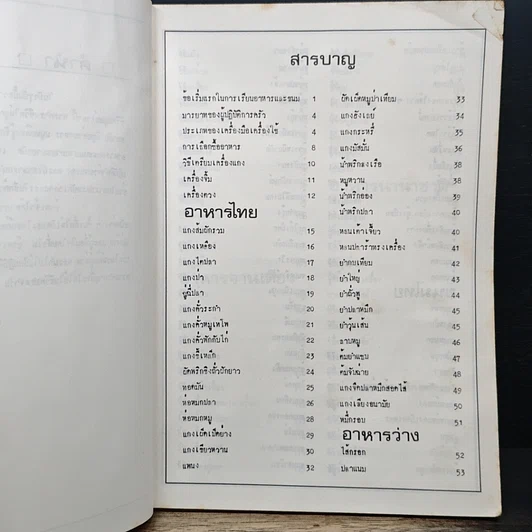 สารบาญ
ข้อเริ่มแรกในการเรียนอาหารและขนม 1
มารยาทของผู้ปฏิบัติการครัว 4
ประเภทของเครื่องมือเครื่องใช้ 4
การเลือกซื้ออาหาร 8
วิธีเตรียมเครื่องแกง 10
เครื่องจิ้ม 11
เครื่องควง 12
อาหารไทย
แกงส้มผักรวม 15
แกงเหลือง 16
แกงไตปลา 17
แกงป่า 18
ยู่ยี่ปลา 19
แกงคั่วระกำ 20
แกงคั่วหมูเทโพ 21
แกงคั่วฟักกับไก่ 22
แกงขี้เหล็ก 23
ผัดพริกขิงถั่วฝักยาว 24
ทอดมัน 25
ห่อหมกปลา 26
ห่อหมกหมู 28
แกงเผ็ดเป็ดย่าง 29
แกงเขียวหวาน 30
แพนง 32
ผัดเผ็ดหมูป่าเทียม 33
แกงฮังเลย์ 34
แกงกะหรี่ 35
แกงมัสมั่น 36
น้ำพริกลงเรือ 38
หมูหวาน 38
น้ำพริกอ่อง 39
น้ำพริกปลา 40
หลนเต้าเจี้ยว 40
หลนปลาร้าทรงเครื่อง 41
ยำกบเทียม 42
ยำใหญ่ 43
ยำถั่วพู 44
ยำปลาหมึก 45
ยำวุ้นเส้น 45
ลาบหมู 46
ต้มยำแขน 47
ต้มจิวฉ่าย 48
แกงจืดปลาหมึกสอดไส้ 49
แกงเลียงอนามัย 50
หมี่กรอบ 51
อาหารว่าง
ไส้กรอก 52
ปลาแนม 53